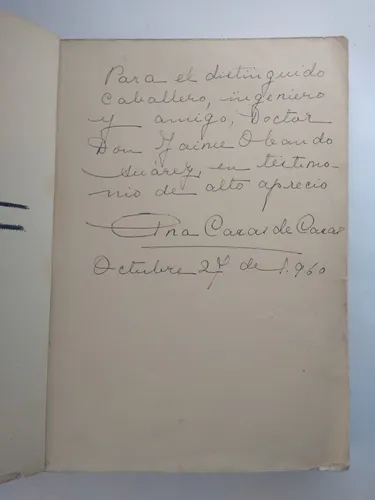 Para el distinguido
Caballero, ingeniero
y amigo, Doctor
Don Jaime Obando
Suárez, en testimo-
nio de alto aprecio
Ana Casas de Casas
Octubre 27 de 1.960